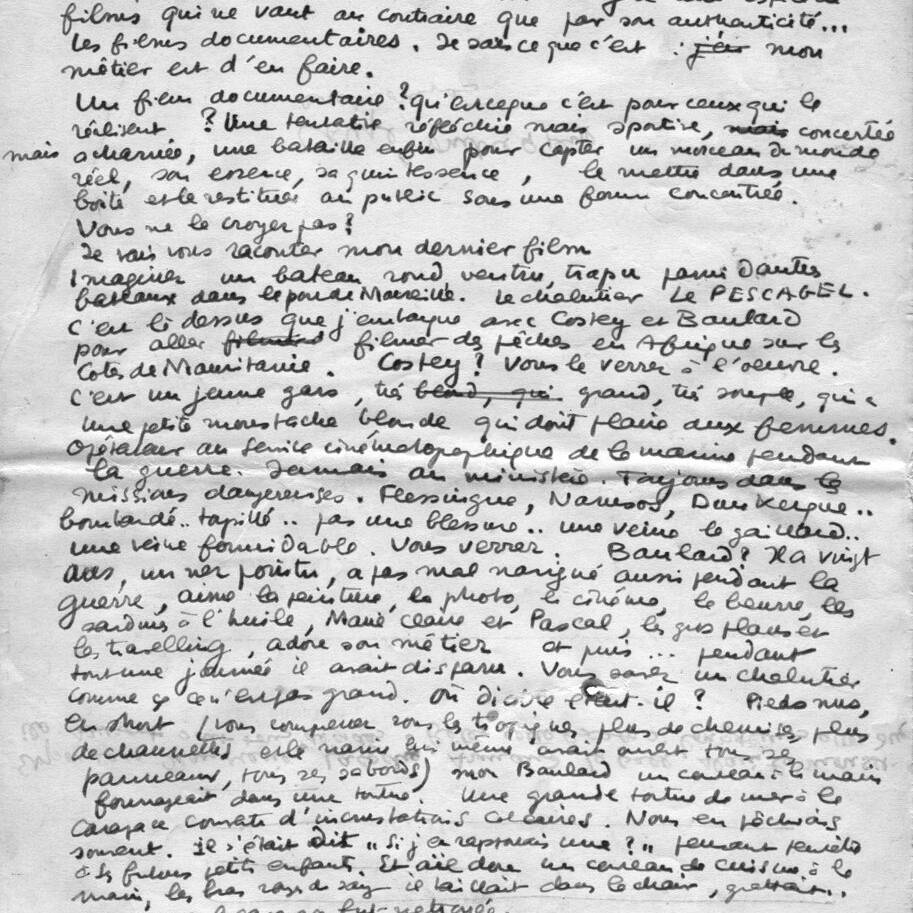 films qui ne vaut au contraire que par son authenticité...
Les films documentaires. Je sais ce que c'est : j'en mon
métier est d'en faire.
Un film documentaire ? qu'est ce que c'est pour ceux qui le
réalisent ? Une tentative réfléchie mais sportive, mais concertée
mais acharnée, une bataille enfin pour capter un morceau de monde
réel, son essence, sa quintessence, le mettre dans une
boîte et le restituer au public sous une forme concentrée.
Vous ne le croyez pas ?
Je vais vous raconter mon dernier film
Imaginez un bateau rond ventru, trapu parmi d'autres
bateaux dans le port de Marseille. Le chalutier LE PESCAGEL.
C'est là dessus que j'embarque avec Costey et Baulard
pour aller filmer des pêches en Afrique sur les
Cotes de Mauritanie. Costey ? Vous le verrez à l'oeuvre.
C'est un jeune gars, très blond, qui grand, très souple, qui a
une petite moustache blonde qui doit plaire aux femmes.
Opérateur au Service cinématographique de la marine pendant
la guerre. Jamais au ministère. Toujours dans les
missions dangereuses. Flessingue, Namsos, Dunkerque..
bombardé.. torpillé.. pas une blessure.. une veine le gaillard..
une veine formidable. Vous verrez. Baulard ? Il a vingt
ans, un nez pointu, a pas mal navigué aussi pendant la
guerre, aime la peinture, la photo, le cinéma, le beurre, les
sardines à l'huile, Marie Claire et Pascal, les gros plans et
les travelling, adore son métier et puis ... pendant
toute une journée il avait disparu. Vous savez un chalutier
comme ça ce n'est pas grand. Où diable était-il ? Pieds nus,
en short (vous comprenez sous les tropiques, plus de chemise, plus
de chaussettes et le navire lui même avait ouvert tous ses
panneaux, tous ses sabords) mon Baulard un couteau à la main
fourrageait dans une tortue. Une grande tortue de mer à la
carapace couverte d'incrustations calcaires. Nous en pêchions
souvent. Il s'était dit "Si j'en rapportais une ?" pensant
à ses futurs petits enfants. Et donc un couteau de cuisine à la
main, les bras rouges de sang il taillait dans la chair, grattait..